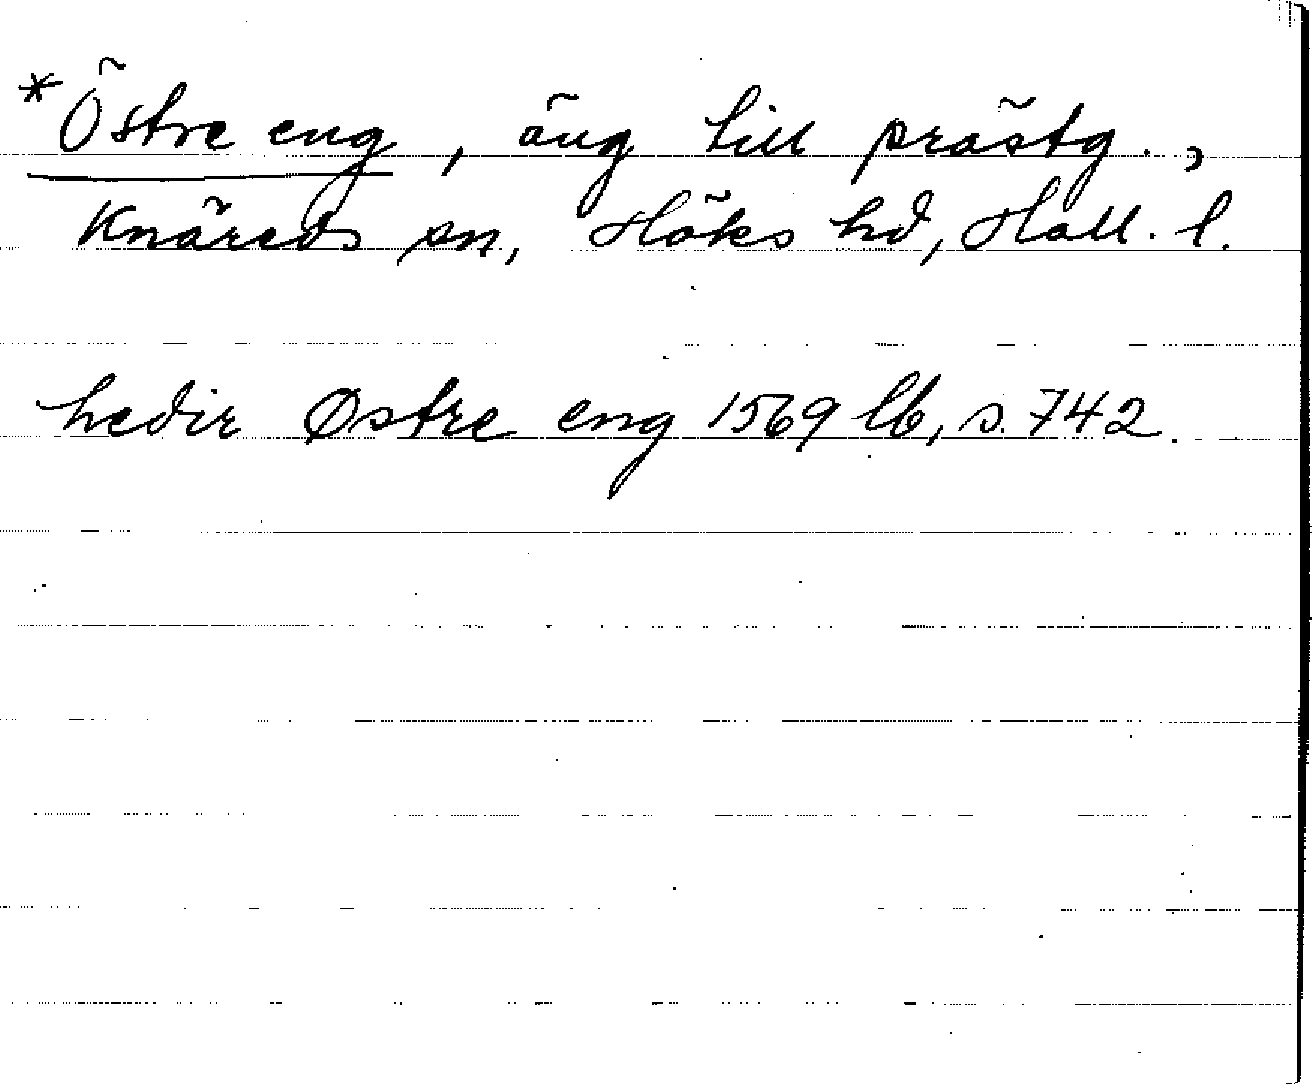 *Östre eng, äng till prästg.,
Knäreds sn, Höks hd, Hall. l.
hedir Østre eng 1569 lb, s. 742.